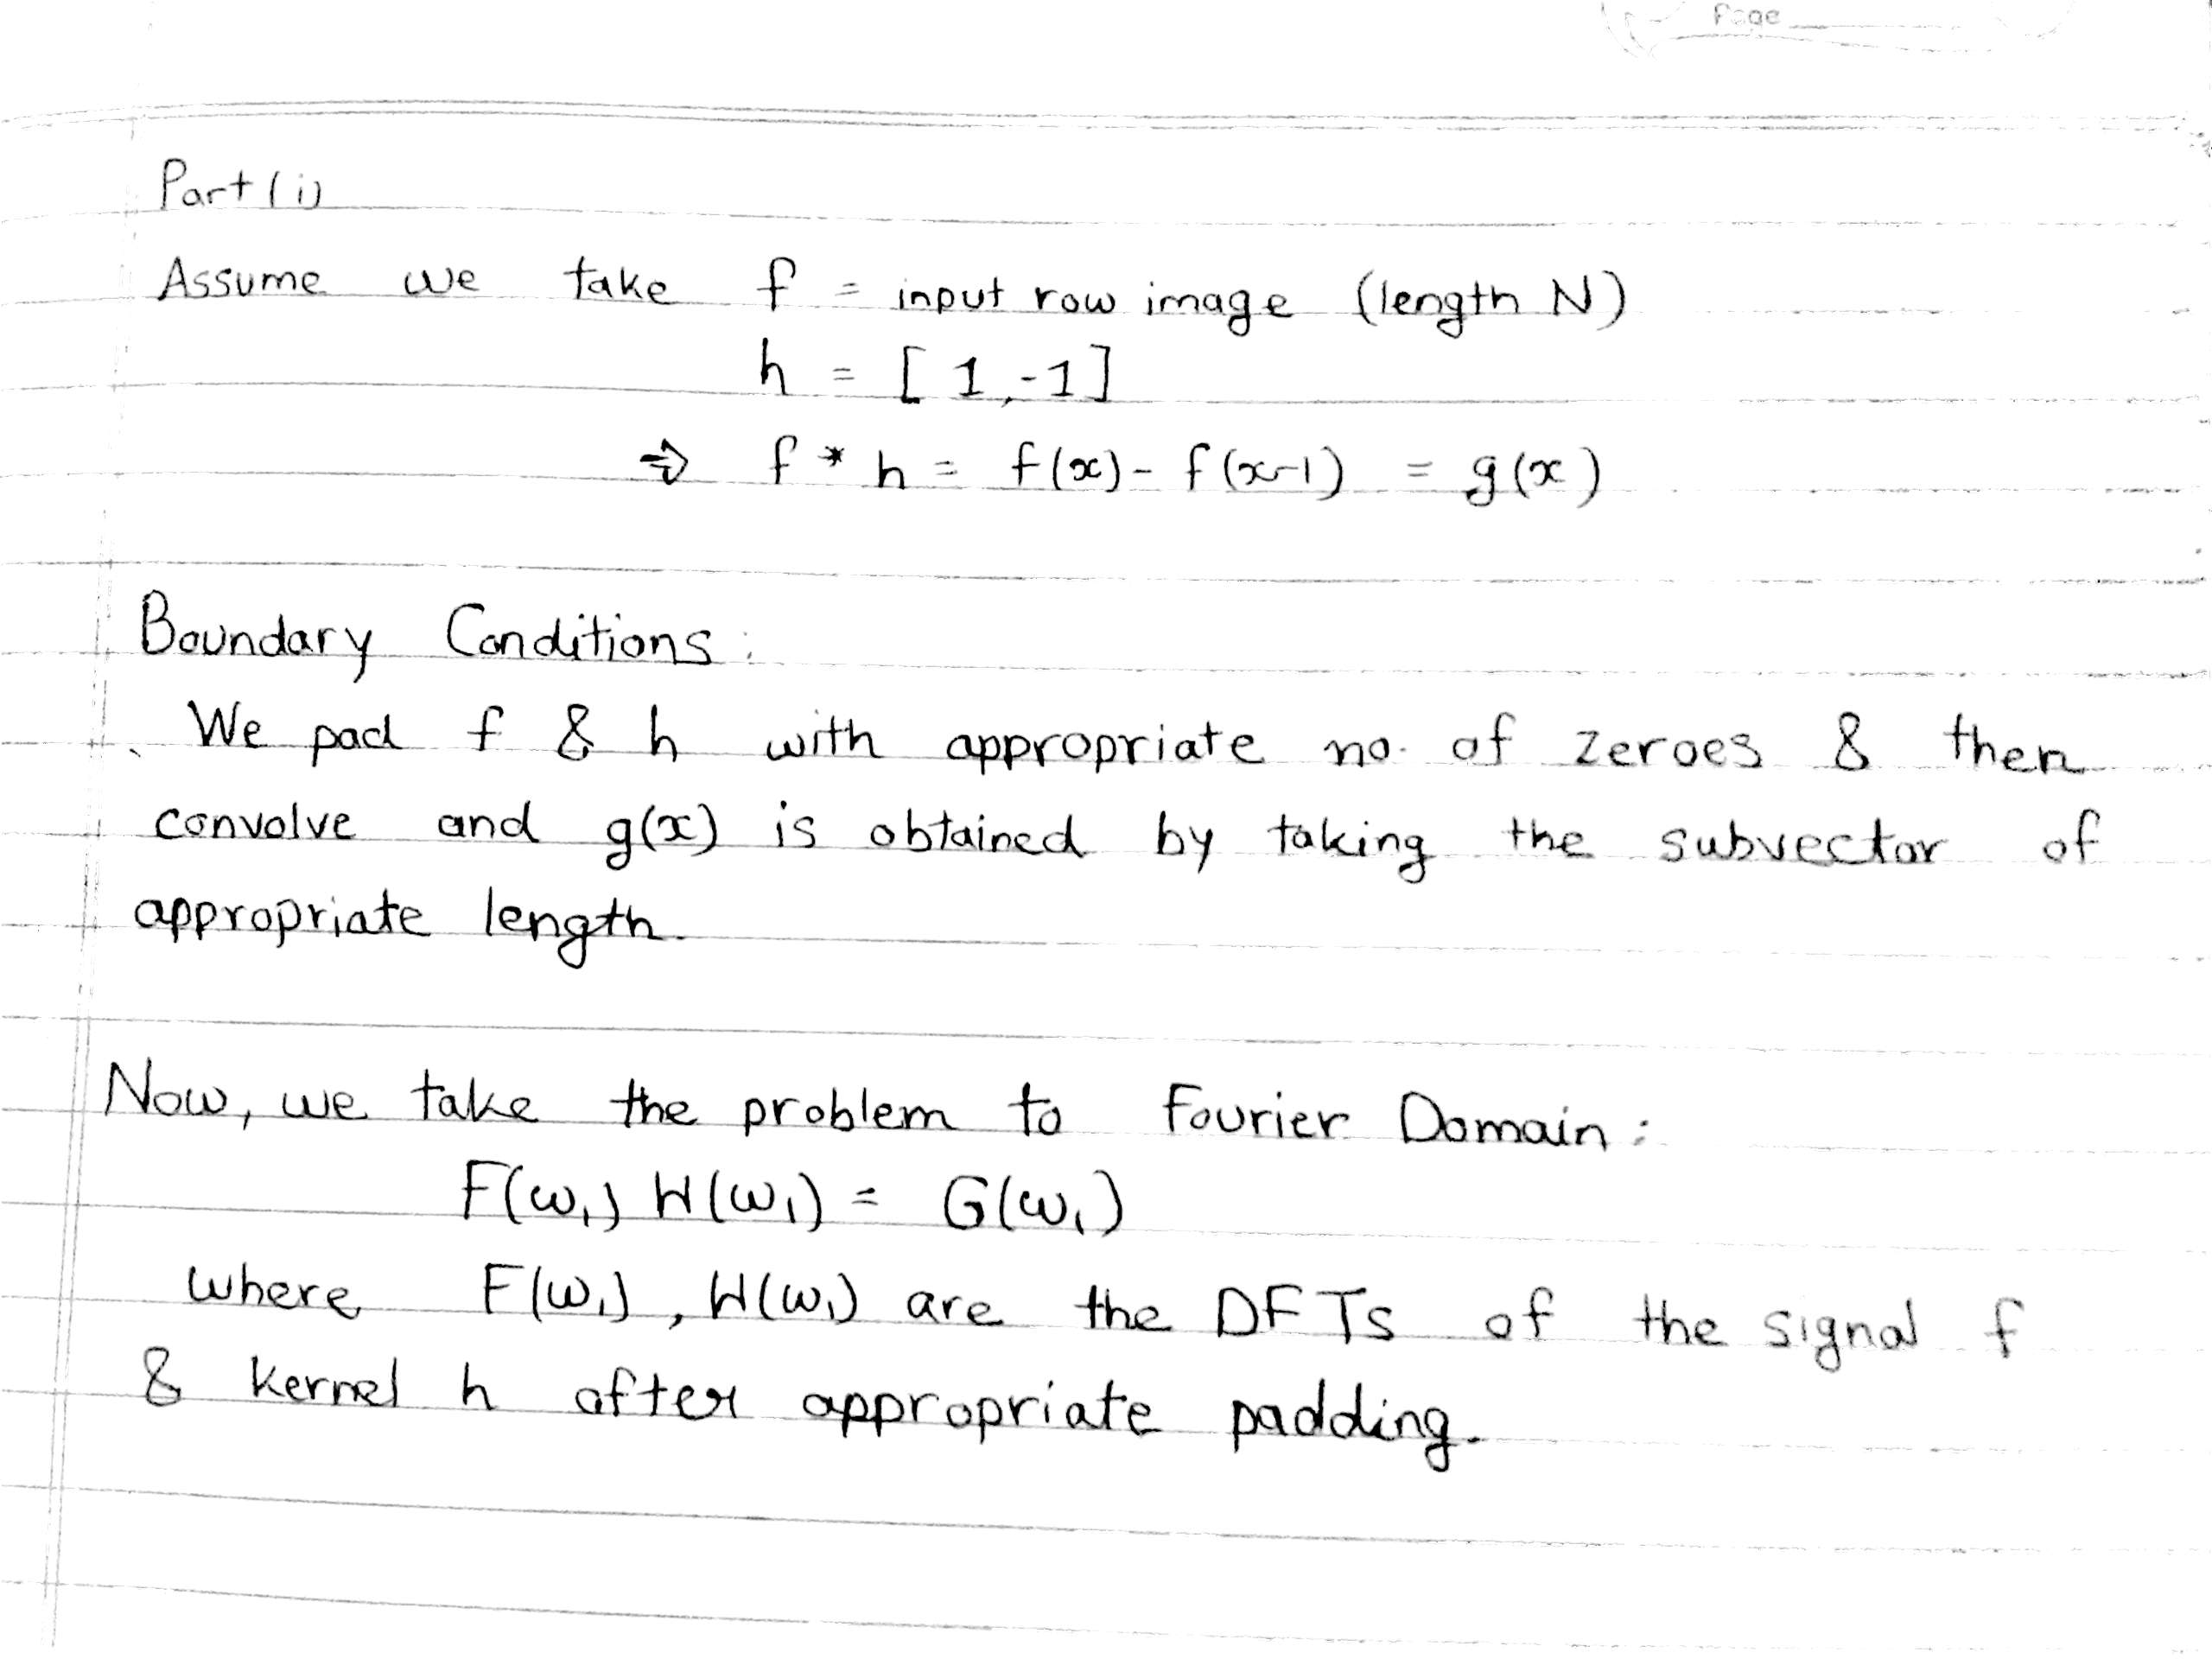 Page
Part (i)
Assume we take f = input row image (length N)
h = [1, -1]
⇒ f * h = f(x) - f(x-1) = g(x)
Boundary Conditions:
We pad f & h with appropriate no. of zeroes & then
convolve and g(x) is obtained by taking the subvector of
appropriate length.
Now, we take the problem to Fourier Domain:
F(ω₁) H(ω₁) = G(ω₁)
where F(ω₁), H(ω₁) are the DFTs of the signal f
& kernel h after appropriate padding.